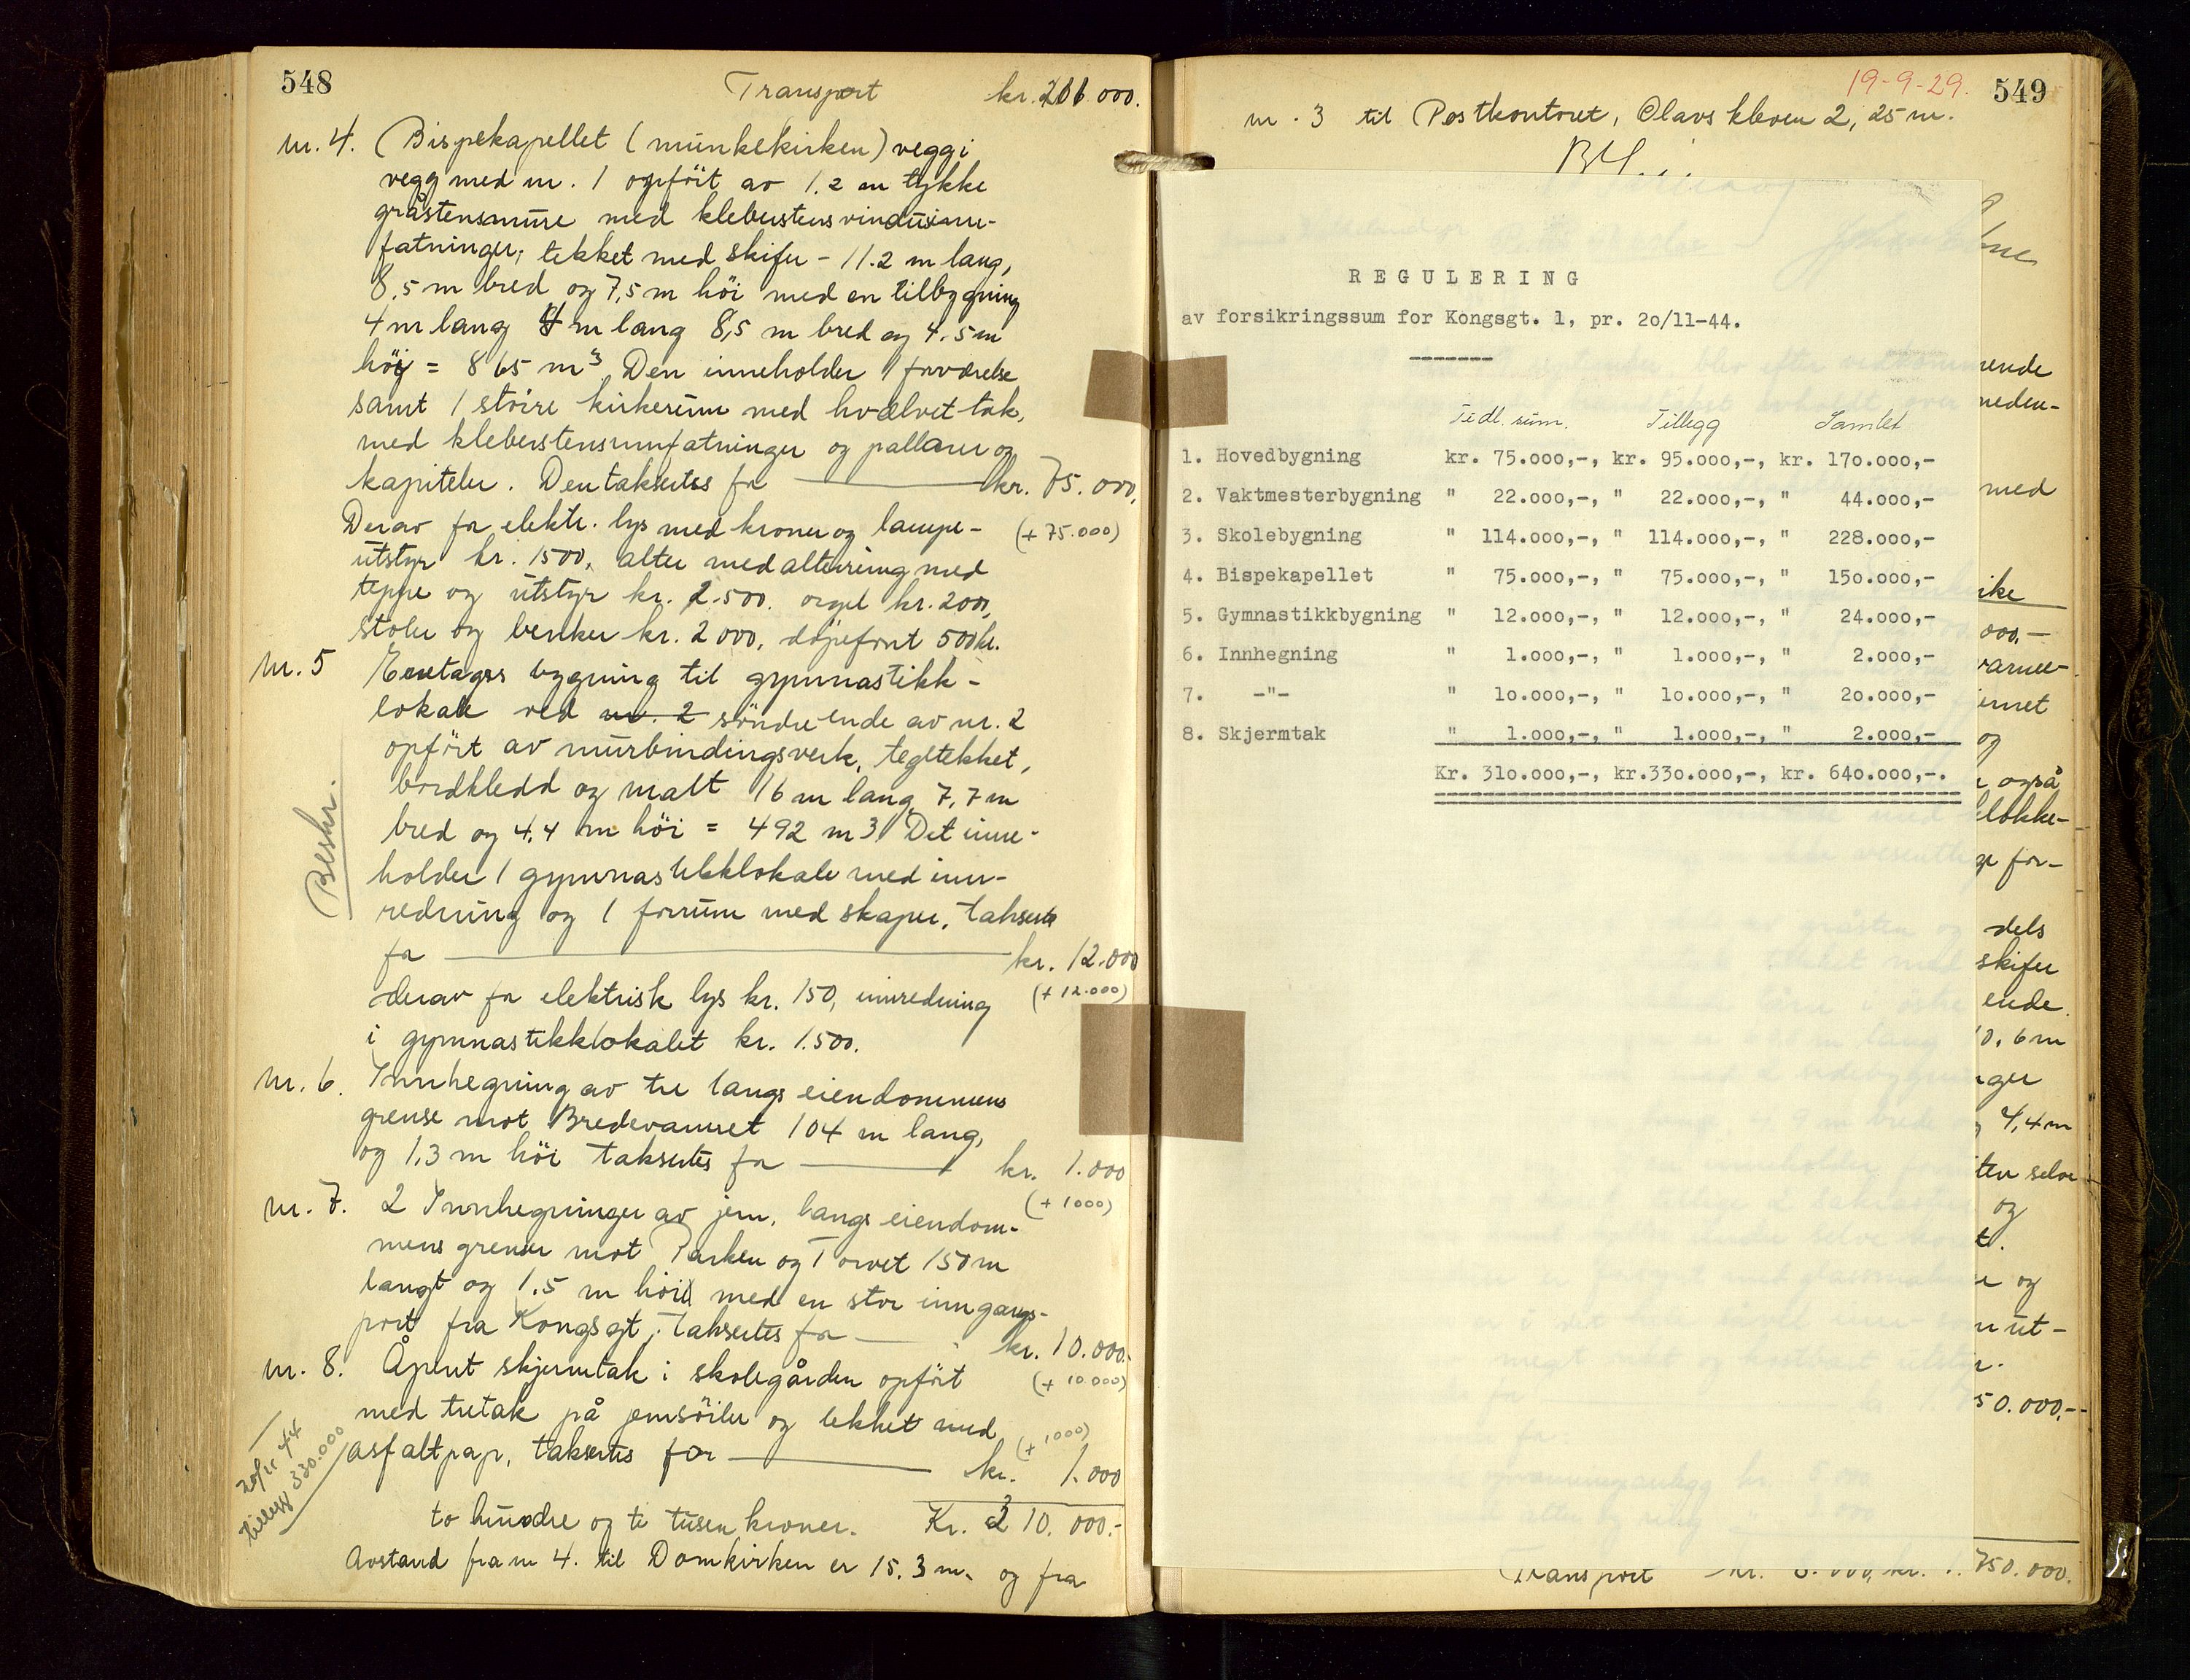 548
Transport kr. 211 000.
nr. 4. Bispekapellet (munkekirken) vegg i
vegg med nr. 1 opført av 1.2 m tykke
gråstensmure med kleberstensvindusinn-
fatninger, tekket med skifer - 11.2 m lang,
8.5 m bred og 7,5 m höi med en tilbygning
4 m lang 4 m lang 8,5 m bred og 4.5 m
höi = 865 m³ Den inneholder 1 forværelse
samt 1 större kirkerum med hvælvet tak,
med kleberstensinnfatninger og pillarer og
kapiteler. Den takseres for kr. 75.000,
Derav for elektr. lys med kroner og lampe- (+ 75.000)
utstyr kr. 1500, alter med alterring med
teppe og utstyr kr. 2.500. orgel kr. 2000,
stoler og benker kr. 2 000, döpefont 500 kr.
nr. 5 Enetages bygning til gymnastikk-
lokale ved nr. 2 söndre ende av nr. 2
opfört av murbindingsverk, tegltekket,
bordkledd og malt 16 m lang, 7,7 m
bred og 4,4 m höi = 492 m3 Det inne-
holder 1 gymnastikklokale med inn-
redning og 1 forrum med skaper, takseres
for kr. 12.000
derav for elektrisk lys kr. 150, innredning (+ 12.000)
i gymnastikklokalet kr. 1.500.
Beskr.
nr. 6. Innhegning av tre langs eiendommens
grense mot Bredevannet 104 m lang,
og 1,3 m höi takseres for kr. 1.000
(+ 1000)
nr. 7. 2 Innhegninger av jern, langs eiendom-
mens grenser mot Parken og Torvet 150 m
langt og 1.5 m höi med en stor inngangs-
port fra Kongsgt. takseres for kr. 10.000.-
nr. 8. Åpent skjermtak i skolegården opfört (+ 10.000)
med tretak på jernsöiler og tekket med
asfaltpap, takseres for kr. 1.000
(+ 1000)
20/11 44
tillegg 330.000
to hundre og ti tusen kroner. Kr. 310.000.-
Avstand fra nr 4. til Domkirken er 15.3 m. og fra
19-9-29. 549
nr. 3 til Postkontoret, Olavs kleven 2, 25 m.
REGULERING
av forsikringssum for Kongsgt. 1, pr. 2o/11-44.
Tidl. sum. Tillegg Samlet
1. Hovedbygning kr. 75.ooo,-, kr. 95.ooo,-, kr. 17o.ooo,-
2. Vaktmesterbygning " 22.ooo,-, " 22.ooo,-, " 44.ooo,-
3. Skolebygning " 114.ooo,-, " 114.ooo,-, " 228.ooo,-
4. Bispekapellet " 75.ooo,-, " 75.ooo,-, " 15o.ooo,-
5. Gymnastikkbygning " 12.ooo,-, " 12.ooo,-, " 24.ooo,-
6. Innhegning " 1.ooo,-, " 1.ooo,-, " 2.ooo,-
7. -"- " 1o.ooo,-, " 1o.ooo,-, " 2o.ooo,-
8. Skjermtak " 1.ooo,-, " 1.ooo,-, " 2.ooo,-
Kr. 31o.ooo,-, kr.33o.ooo,-, kr. 64o.ooo,-.
med
og
også
dels
skifer
ende
10,6 m
4,4 m
selve
og
og
50.000.-
Transport kr. 750.000.